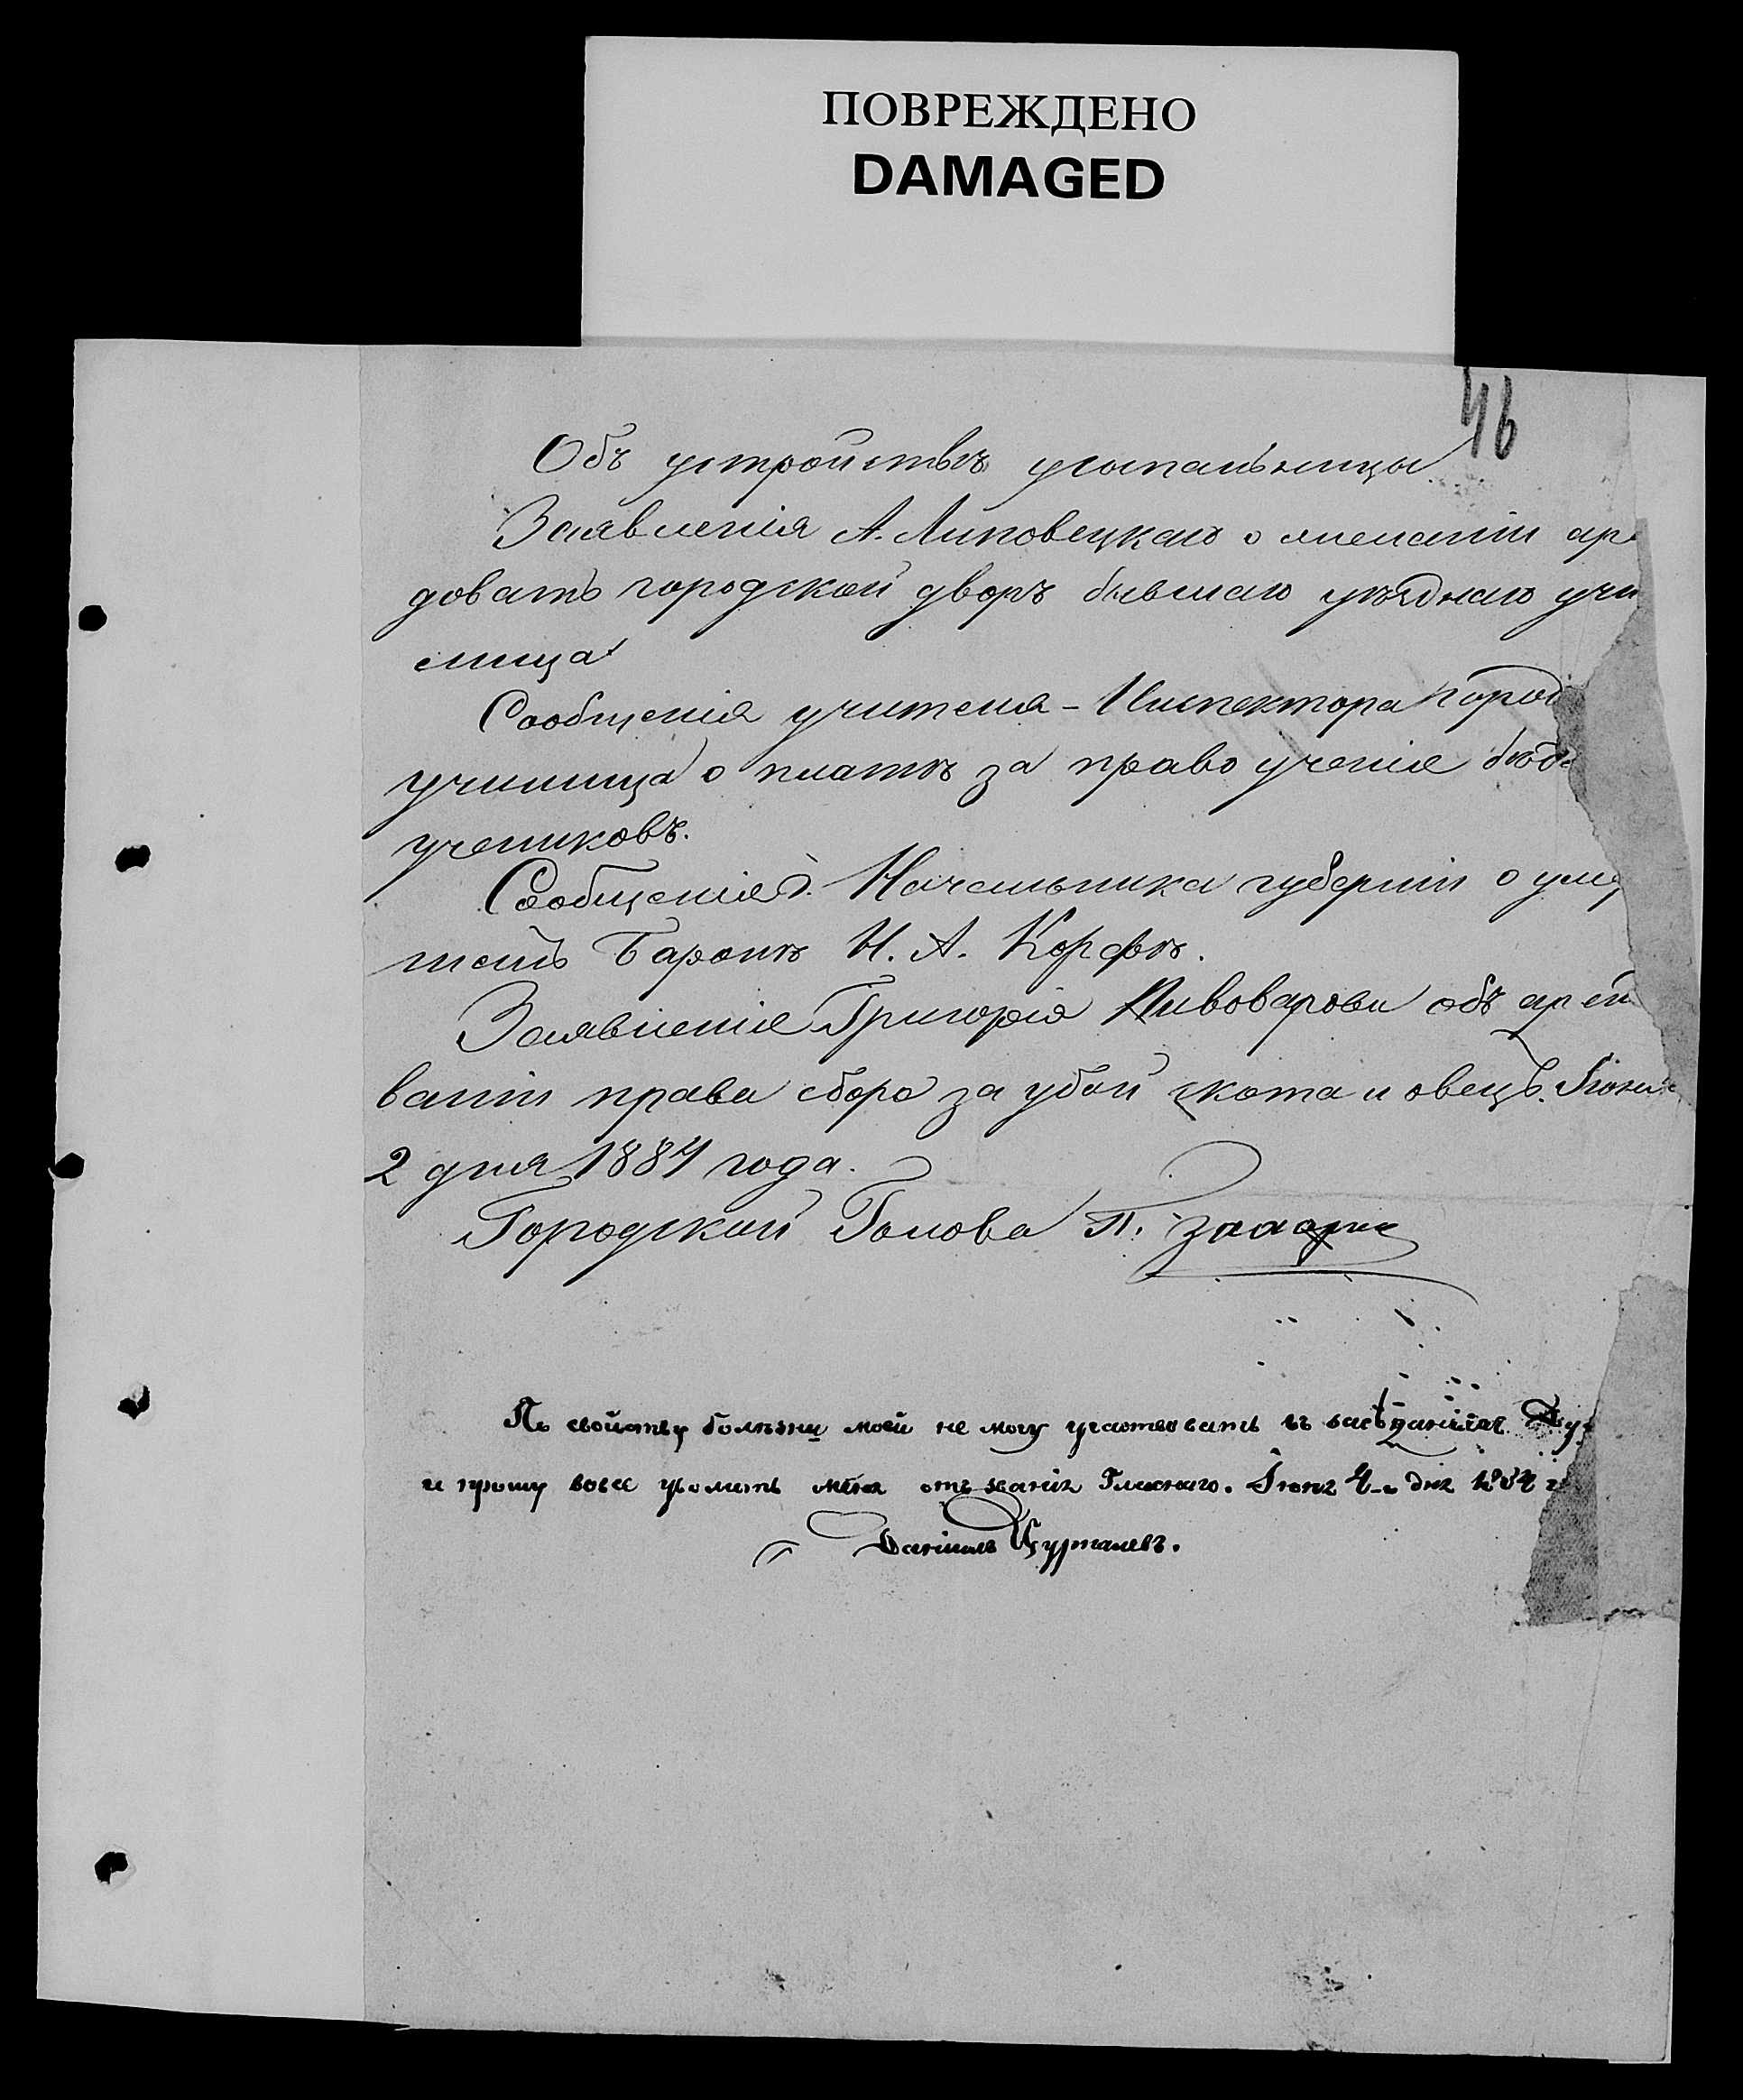 ПОВРЕЖДЕНО
DAMAGED
46
Объ устройствѣ усыпальницы.
Заявленія А. Липовецкаго о желаніи ар
довать городской дворъ бывшаго уѣзднаго учи
лища
Сообщенія учителя-Инспектора Город
училища о платѣ за право ученія бѣд
учениковъ.
Сообщеніе г. Начальника губерніи о уме
шемъ Баронѣ Н. А. Корфѣ.
Заявленіе Григорія Пивоварова объ арен
ваніи права сбора за убой скота и овецъ. Іюня
2 дня 1884 года.
Городской Голова П.
По свойству болѣзни моей не могу участвовать въ засѣданіяхъ Ду
и прошу вовсе уволить меня отъ званія Гласнаго. Іюня 4-го дня 1884 г
Даніилъ Цурталевъ.